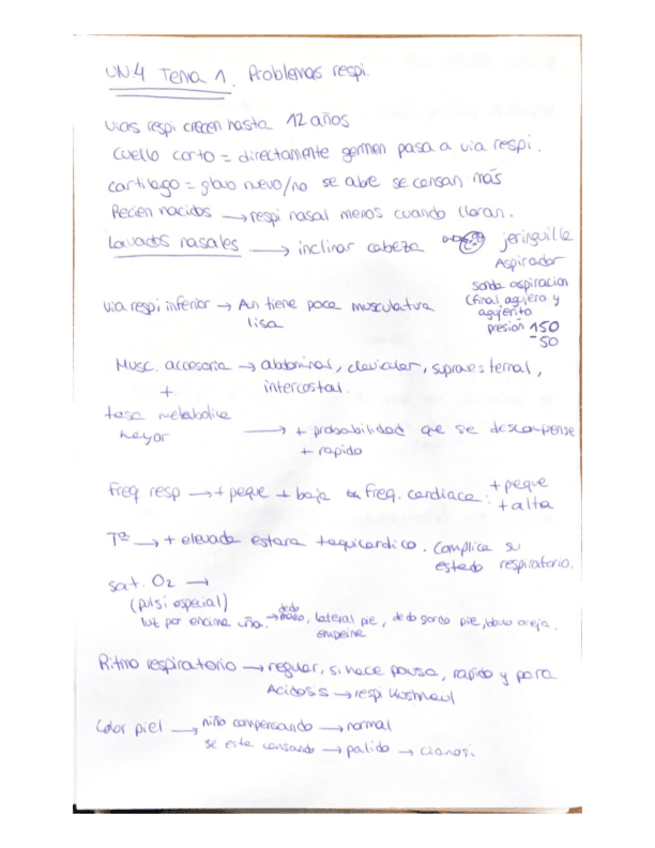 UN.4 Tema 1. Problemas respi.
vias respi crecen hasta 12 años
Cuello corto = directamente germen pasa a via respi.
cartilago = globo nuevo/no se abre se cansan más
Recien nacidos → respi nasal menos cuando lloran.
Lavados nasales → inclinar cabeza
jeringuilla
Aspirador
sonda aspiracion
(final agujero y
agujerito
presión 150
-50
via respi inferior → Aun tiene poca musculatura
lisa
Musc. accesoria → abdominal, clavicular, supraesternal,
+ intercostal.
tasa metabolica
mayor → + probabilidad que se descompense
+ rapido
Freq resp → + peque + baja Freq. cardiaca: + peque
+ alta
Tª → + elevada estara taquicardico. Complica su
estado respiratorio.
sat. O2 →
(pulsi especial)
luz por encima uña. → dedo mano, lateral pie, dedo gordo pie, lobulo oreja.
empeine
Ritmo respiratorio → regular, si hace pausa, rapido y para
Acidosis → respi Kusmaul
Color piel → niño compensando → normal
se esta cansando → palido → cianosi.